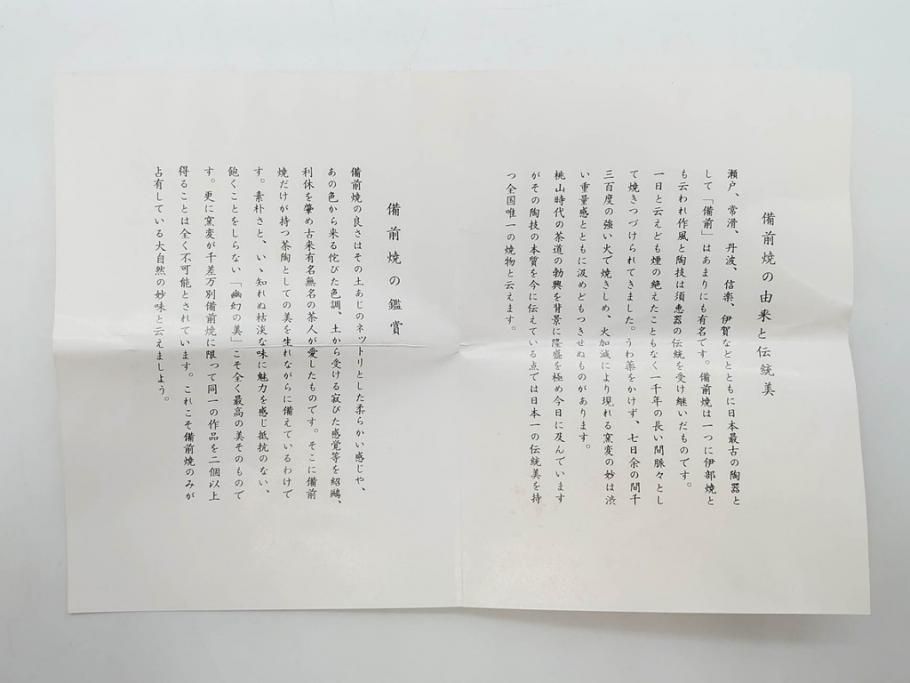 備前焼の由来と伝統美
瀬戸、常滑、丹波、信楽、伊賀などとともに日本最古の陶器と
して「備前」はあまりにも有名です。備前焼は一つに伊部焼と
も云われ作風と陶技は須恵器の伝統を受け継いだものです。
一日と云えども煙の絶えたこともなく一千年の長い間脈々とし
て焼きつづけられてきました。うわ薬をかけず、七日余の間千
三百度の強い火で焼きしめ、火加減により現れる窯変の妙は渋
い重量感とともに汲めどもつきせぬものがあります。
桃山時代の茶道の勃興を背景に隆盛を極め今日に及んでいます
がその陶技の本質を今に伝えている点では日本一の伝統美を持
つ全国唯一の焼物と云えます。
備前焼の鑑賞
備前焼の良さはその土あじのネットリとした柔らかい感じや、
あの色から来る侘びた色調、土から受ける寂びた感覚等を紹鷗、
利休を肇め古来有名無名の茶人が愛したものです。そこに備前
焼だけが持つ茶陶としての美を生れながらに備えているわけで
す。素朴さと、いゝ知れぬ枯淡な味に魅力を感じ抵抗のない、
飽くことをしらない「幽幻の美」こそ全く最高の美そのもので
す。更に窯変が千差万別備前焼に限つて同一の作品を二個以上
得ることは全く不可能とされています。これこそ備前焼のみが
占有している大自然の妙味と云えましよう。